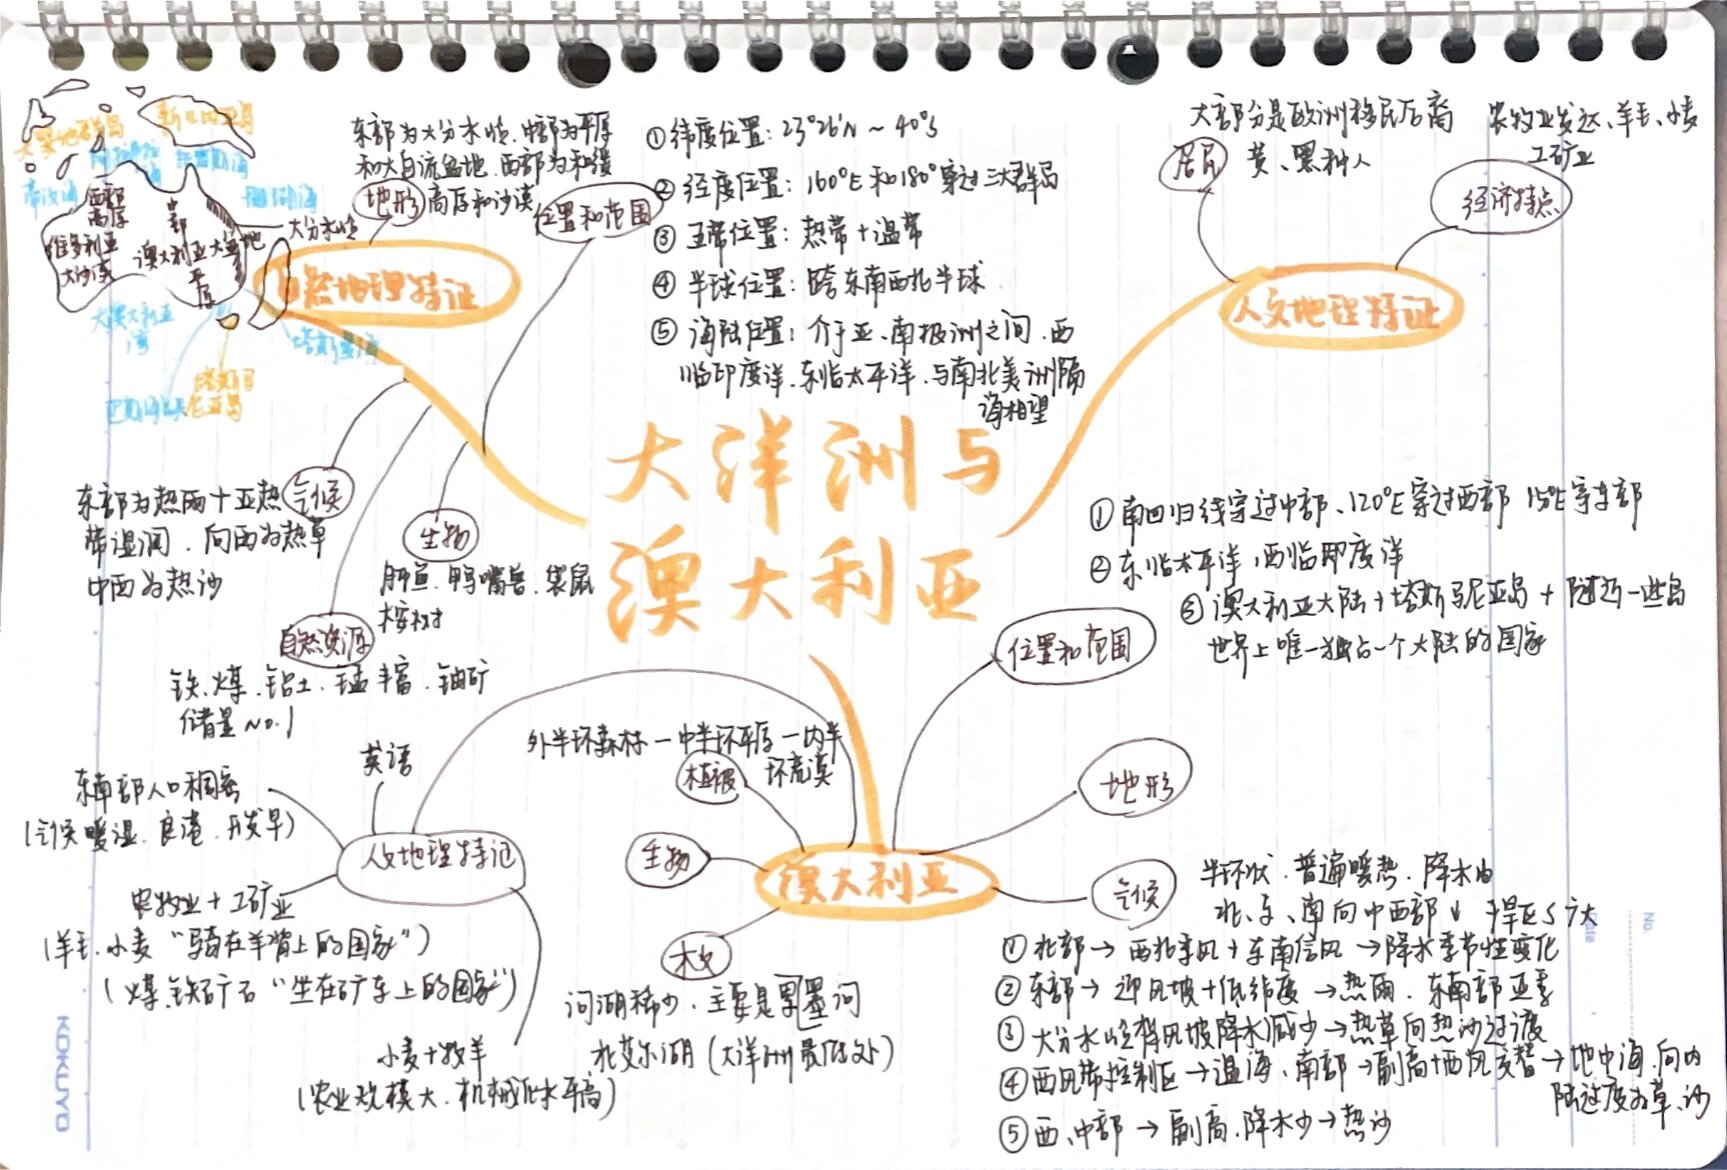 新几内亚岛
珊瑚海
西部
高原
大分水岭
维多利亚
大沙漠
中部
平原
大澳大利亚
湾
塔斯曼海
东部为大分水岭、中部为平原
和大自流盆地、西部为和缓
地形 高原和沙漠
位置和范围
自然地理特证
①纬度位置：23°26′N ~ 40°S
②经度位置：160°E和180°穿过三大群岛
③五带位置：热带+温带
④半球位置：跨东南西北半球
⑤海陆位置：介于亚、南极洲之间、西
临印度洋、东临太平洋、与南北美洲隔
海相望
大部分是欧洲移民后裔
居民 黄、黑种人
农牧业发达、羊毛、小麦
工矿业
经济特点
人文地理特证
大洋洲与
澳大利亚
东部为热雨+亚热 气候
带湿润、向西为热草
中西为热沙
生物
鸭嘴兽、袋鼠
桉树
自然资源
铁、煤、铝土、锰丰富、铀矿
储量No.1
①南回归线穿过中部、120°E穿过西部 15°E穿东部
②东临太平洋，西临印度洋
③澳大利亚大陆+塔斯马尼亚岛+附近一些岛
世界上唯一独占一个大陆的国家
位置和范围
英语
东南部人口稠密
(气候暖湿、良港、开发早)
人文地理特证
农牧业+工矿业
(羊毛、小麦“骑在羊背上的国家”)
(煤、铁矿石“坐在矿车上的国家”)
小麦+牧羊
(农业规模大、机械化水平高)
外半环森林—中半环草原—内半
植被 环荒漠
生物
澳大利亚
水文
河湖稀少、主要是墨累河
北艾尔湖(大洋洲最低处)
地形
气候
半环状、普遍暖热、降水由
北、东、南向中西部↓ 干旱区S广大
①北部→西北季风+东南信风→降水季节性变化
②东部→迎风坡+低纬度→热雨、东南部亚季
③大分水岭背风坡降水减少→热草向热沙过渡
④西风带控制区→温海、南部→副高+西风交替→地中海、向内
陆过渡为草、沙
⑤西、中部→副高、降水少→热沙
No.
Date
KOKUYO